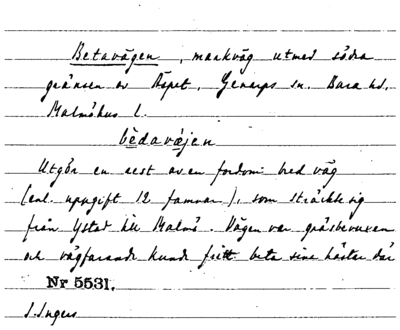 Betavägen, markväg utmed södra
gränsen av Rispet, Genarps sn. Bara hd.
Malmöhus l.
bèdaväjen
Utgör en rest av en fordom bred väg
(enl. uppgift 12 famnar), som sträckte sig
från Ystad till Malmö. Vägen var gräsbevuxen
och vägfarande kunde fritt beta sina hästar där
Nr 5531.
I. Ingers